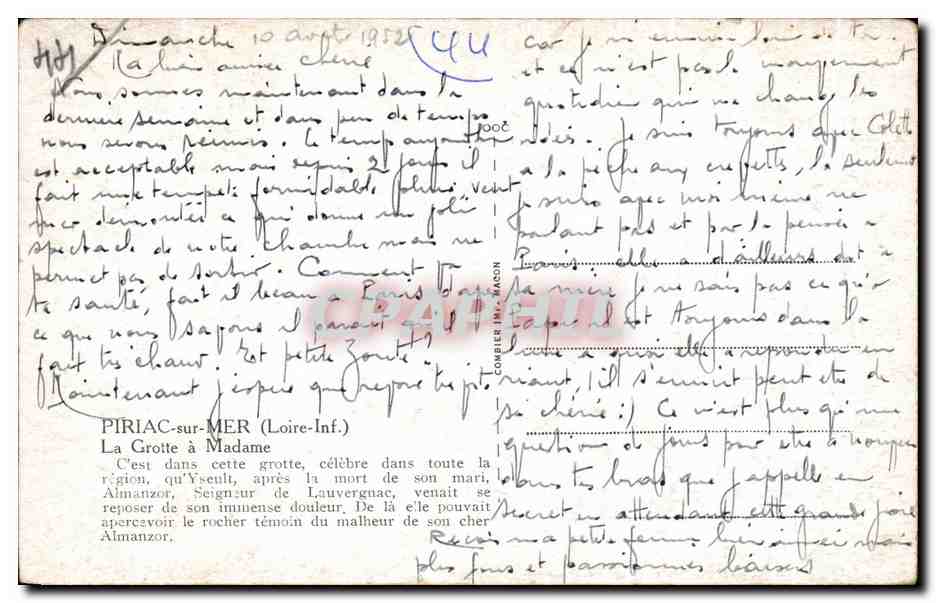 44
Dimanche 10 août 1952
44
Ma bien aimée chérie
Nous sommes maintenant dans la
dernière semaine et dans peu de temps
nous serons réunis. Le temps aujourd'hui
est acceptable mais depuis 2 jours il
fait une tempête formidable pluie, vent
mer démontée ce qui donne un joli
spectacle de notre chambre mais ne
permet pas de sortir. Comment va
ta santé, fait il beau à Paris d'après
ce que nous savons il parait qu'il
fait très chaud. Et petite
Maintenant j'espère que
car je m'ennuie loin de toi
et ce n'est pas le mouvement
quotidien qui me change les
idées. Je suis toujours avec Colette
a la pêche aux crevettes, la
je suis avec moi même ne
parlant pas et par la pensée a
Paris. elle a d'ailleurs dit a
sa mère je ne sais pas ce qu'a
Papa il est toujours dans la
lune a quoi elle a repondu en
riant, il s'ennuie peut etre de
sa chérie :) Ce n'est plus qu'une
question de jours pour etre a nouveau
dans tes bras que j'appelle en
secret en attendant cette grande joie
Reçois ma petite femme bien aimée mais
plus fous et passionnés baisers
COMBIER IMP. MACON
CPAPHIL
PIRIAC-sur-MER (Loire-Inf.)
La Grotte à Madame
C'est dans cette grotte, célèbre dans toute la
région, qu'Yseult, après la mort de son mari,
Almanzor, Seigneur de Lauvergnac, venait se
reposer de son immense douleur. De là elle pouvait
apercevoir le rocher témoin du malheur de son cher
Almanzor.